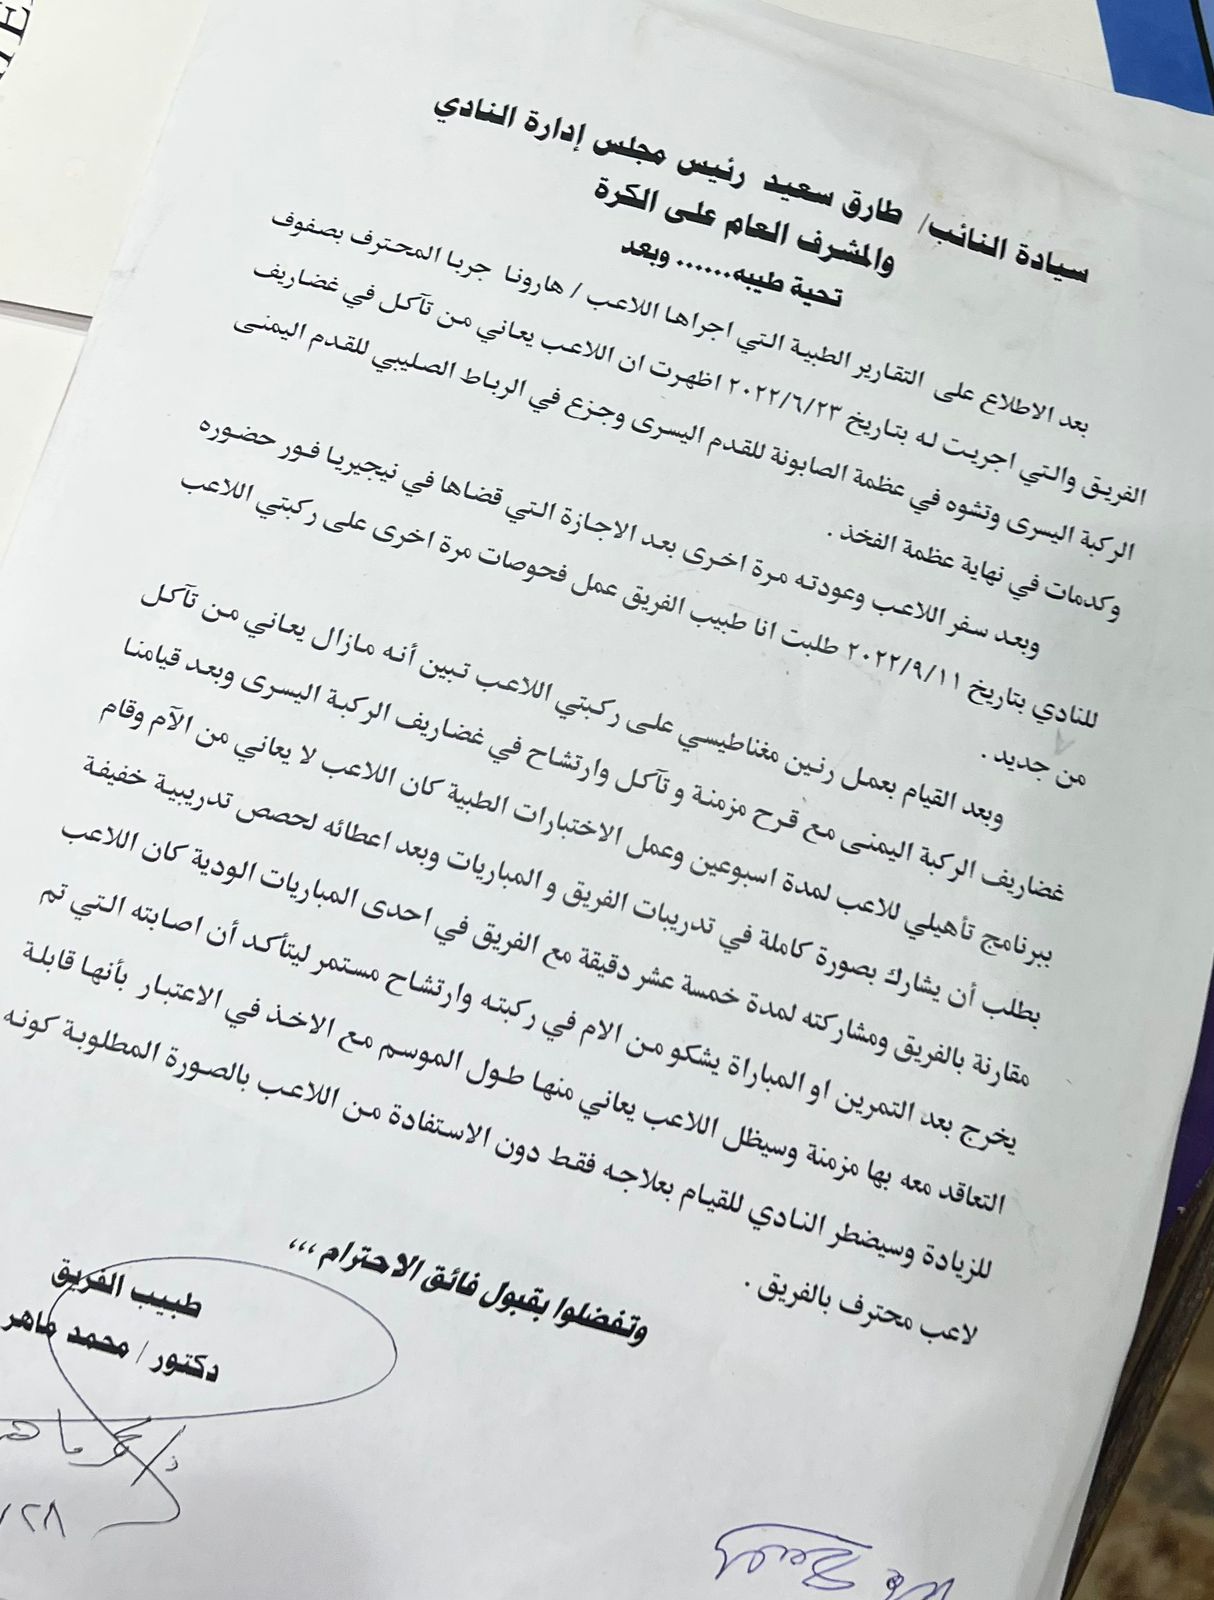 سيادة النائب/ طارق سعيد رئيس مجلس إدارة النادي
والمشرف العام على الكرة
تحية طيبه...... وبعد
بعد الاطلاع على التقارير الطبية التي اجراها اللاعب / هارونا جربا المحترف بصفوف
الفريق والتي اجريت له بتاريخ ٢٠٢٢/٦/٢٣ اظهرت ان اللاعب يعاني من تآكل في غضاريف
الركبة اليسرى وتشوه في عظمة الصابونة للقدم اليسرى وجزع في الرباط الصليبي للقدم اليمنى
وكدمات في نهاية عظمة الفخذ .
وبعد سفر اللاعب وعودته مرة اخرى بعد الاجازة التي قضاها في نيجيريا فور حضوره
للنادي بتاريخ ٢٠٢٢/٩/١١ طلبت انا طبيب الفريق عمل فحوصات مرة اخرى على ركبتي اللاعب
من جديد .
وبعد القيام بعمل رنين مغناطيسي على ركبتي اللاعب تبين أنه مازال يعاني من تآكل
غضاريف الركبة اليمنى مع قرح مزمنة و تآكل وارتشاح في غضاريف الركبة اليسرى وبعد قيامنا
ببرنامج تأهيلي للاعب لمدة اسبوعين وعمل الاختبارات الطبية كان اللاعب لا يعاني من الآم وقام
بطلب أن يشارك بصورة كاملة في تدريبات الفريق و المباريات وبعد اعطائه لحصص تدريبية خفيفة
مقارنة بالفريق ومشاركته لمدة خمسة عشر دقيقة مع الفريق في احدى المباريات الودية كان اللاعب
يخرج بعد التمرين او المباراة يشكو من الام في ركبته وارتشاح مستمر ليتأكد أن اصابته التي تم
التعاقد معه بها مزمنة وسيظل اللاعب يعاني منها طول الموسم مع الاخذ في الاعتبار بأنها قابلة
للزيادة وسيضطر النادي للقيام بعلاجه فقط دون الاستفادة من اللاعب بالصورة المطلوبة كونه
لاعب محترف بالفريق .
وتفضلوا بقبول فائق الاحترام ,,,
طبيب الفريق
دكتور / محمد ماهر